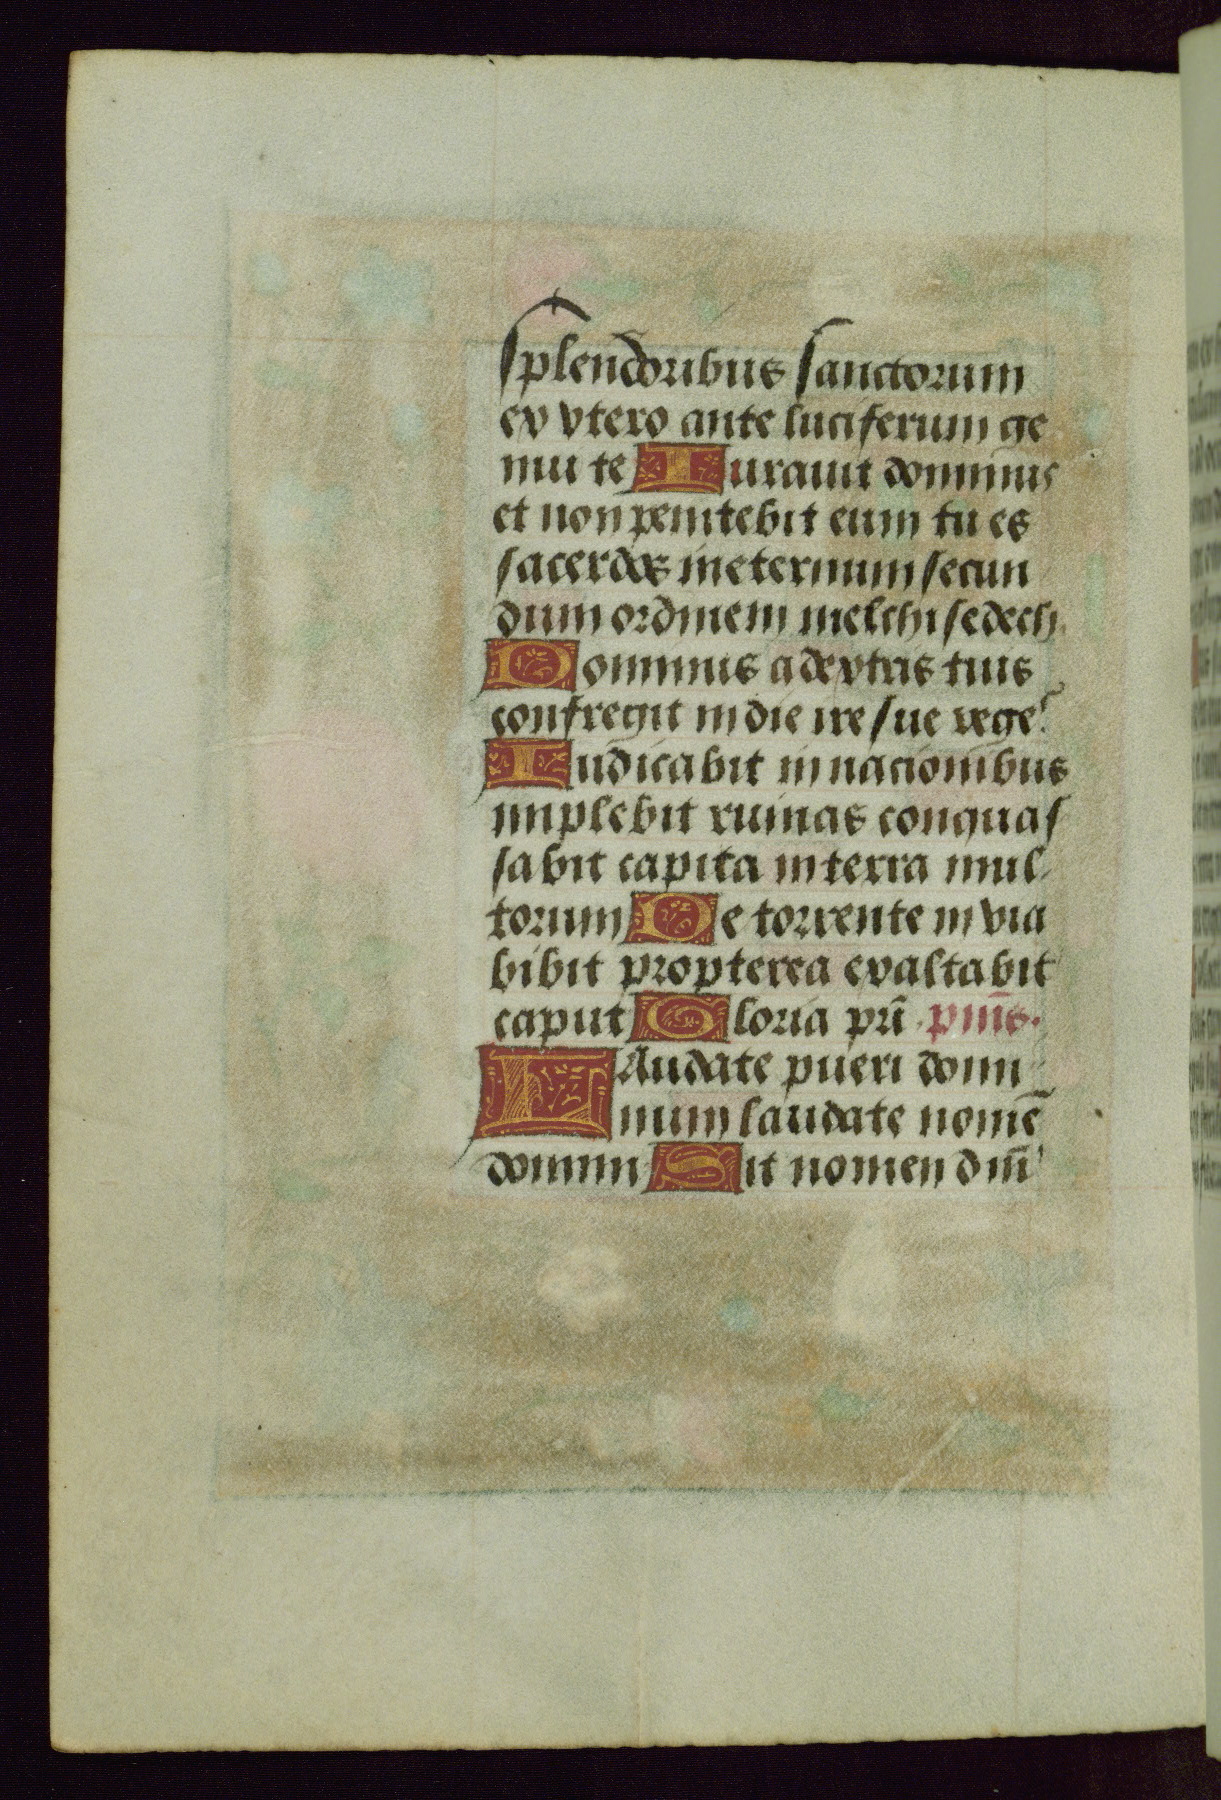 splendoribus sanctorum
ex vtero ante luciferum ge
nui te Iurauit dominus
et non penitebit eum tu es
sacerdos in eternum secun
dum ordinem melchisedech
Dominus a dextris tuis
confregit in die ire sue rege
Iudicabit in nacionibus
implebit ruinas conquas
sabit capita in terra mul
torum De torrente in via
bibit propterea exaltabit
caput Gloria pr̄i · pm̄s·
LAudate pueri domi
num laudate nomē
domini Sit nomen dn̄i